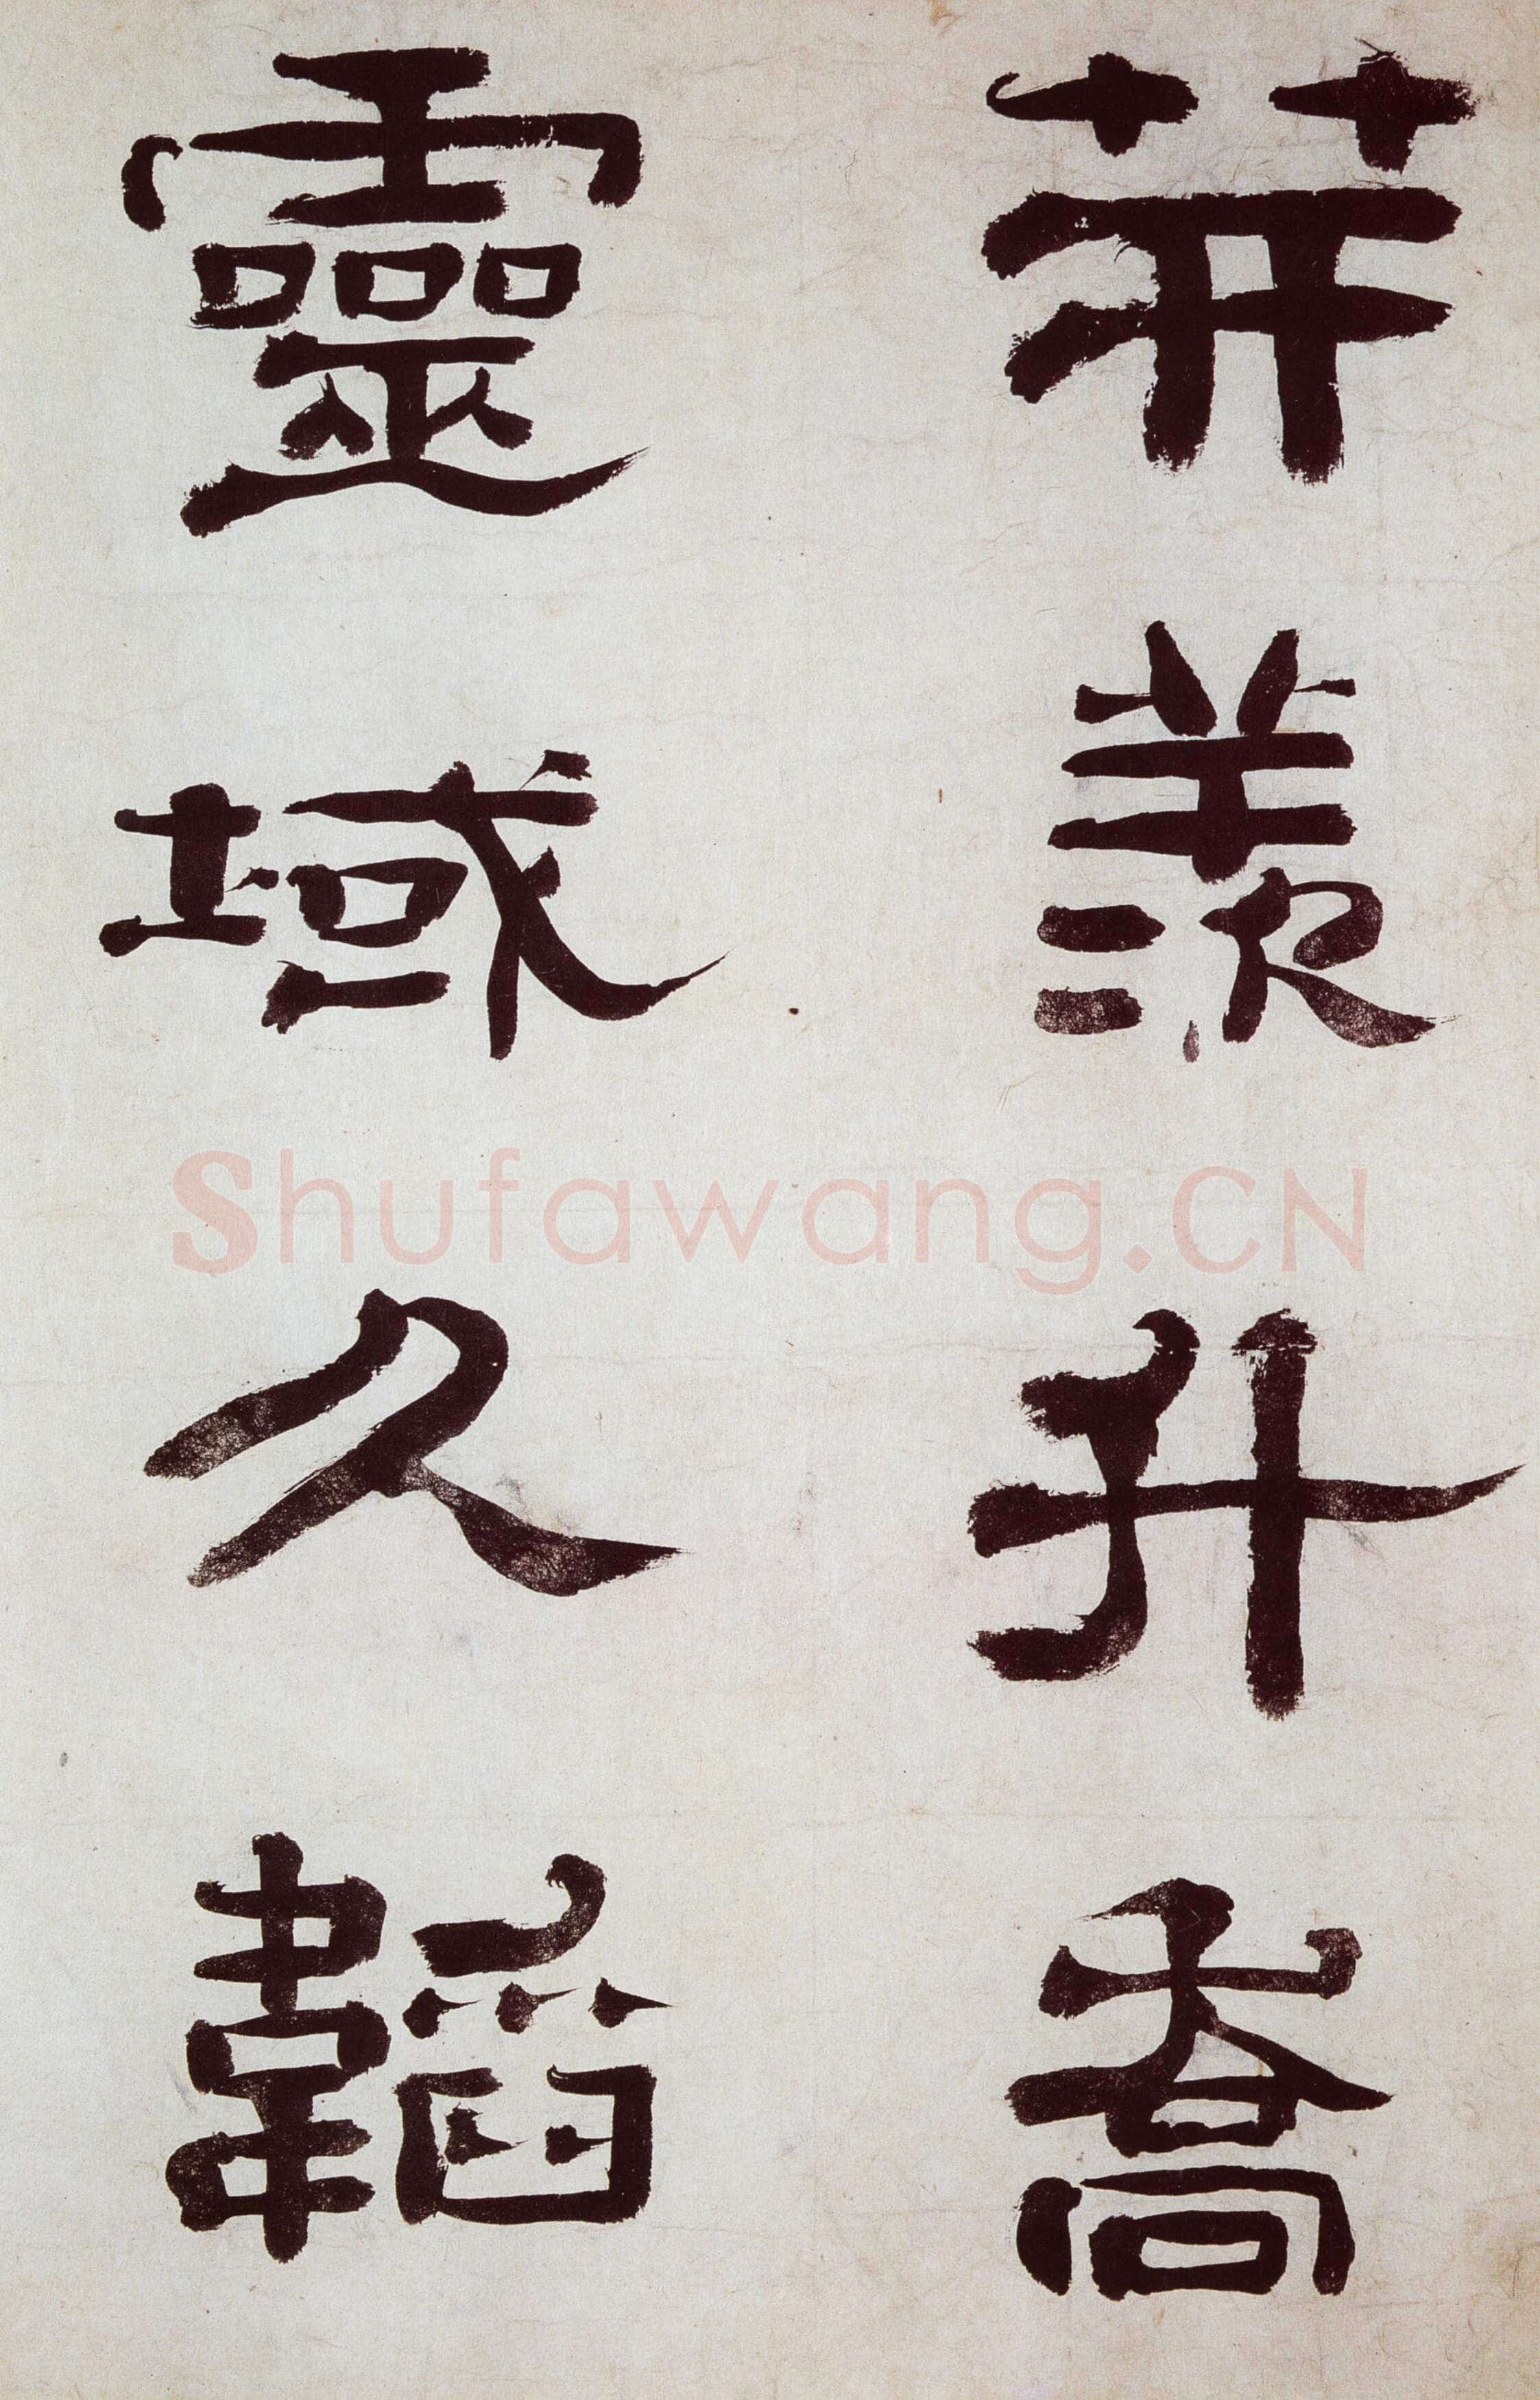 笄羨升喬
靈域久韜
Shufawang.CN